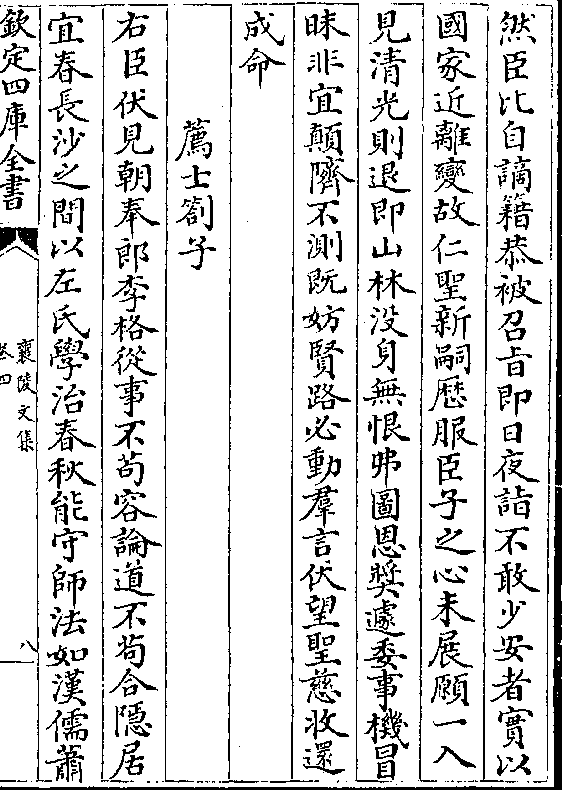 然臣比自謫籍恭被召旨即日夜詣不敢少安者實以
國家近離變故仁聖新嗣歴服臣子之心未展願一入
見清光則退即山林没身無恨弗圖恩奬遽委事機冒
昧非宜顛隮不測既妨賢路必動羣言伏望聖慈收還
成命
薦士劄子
右臣伏見朝奉郎李格從事不苟容論道不茍合隱居
宜春長沙之間以左氏學治春秋能守師法如漢儒蕭
欽定四庫全書
襄陵文集
卷四
八